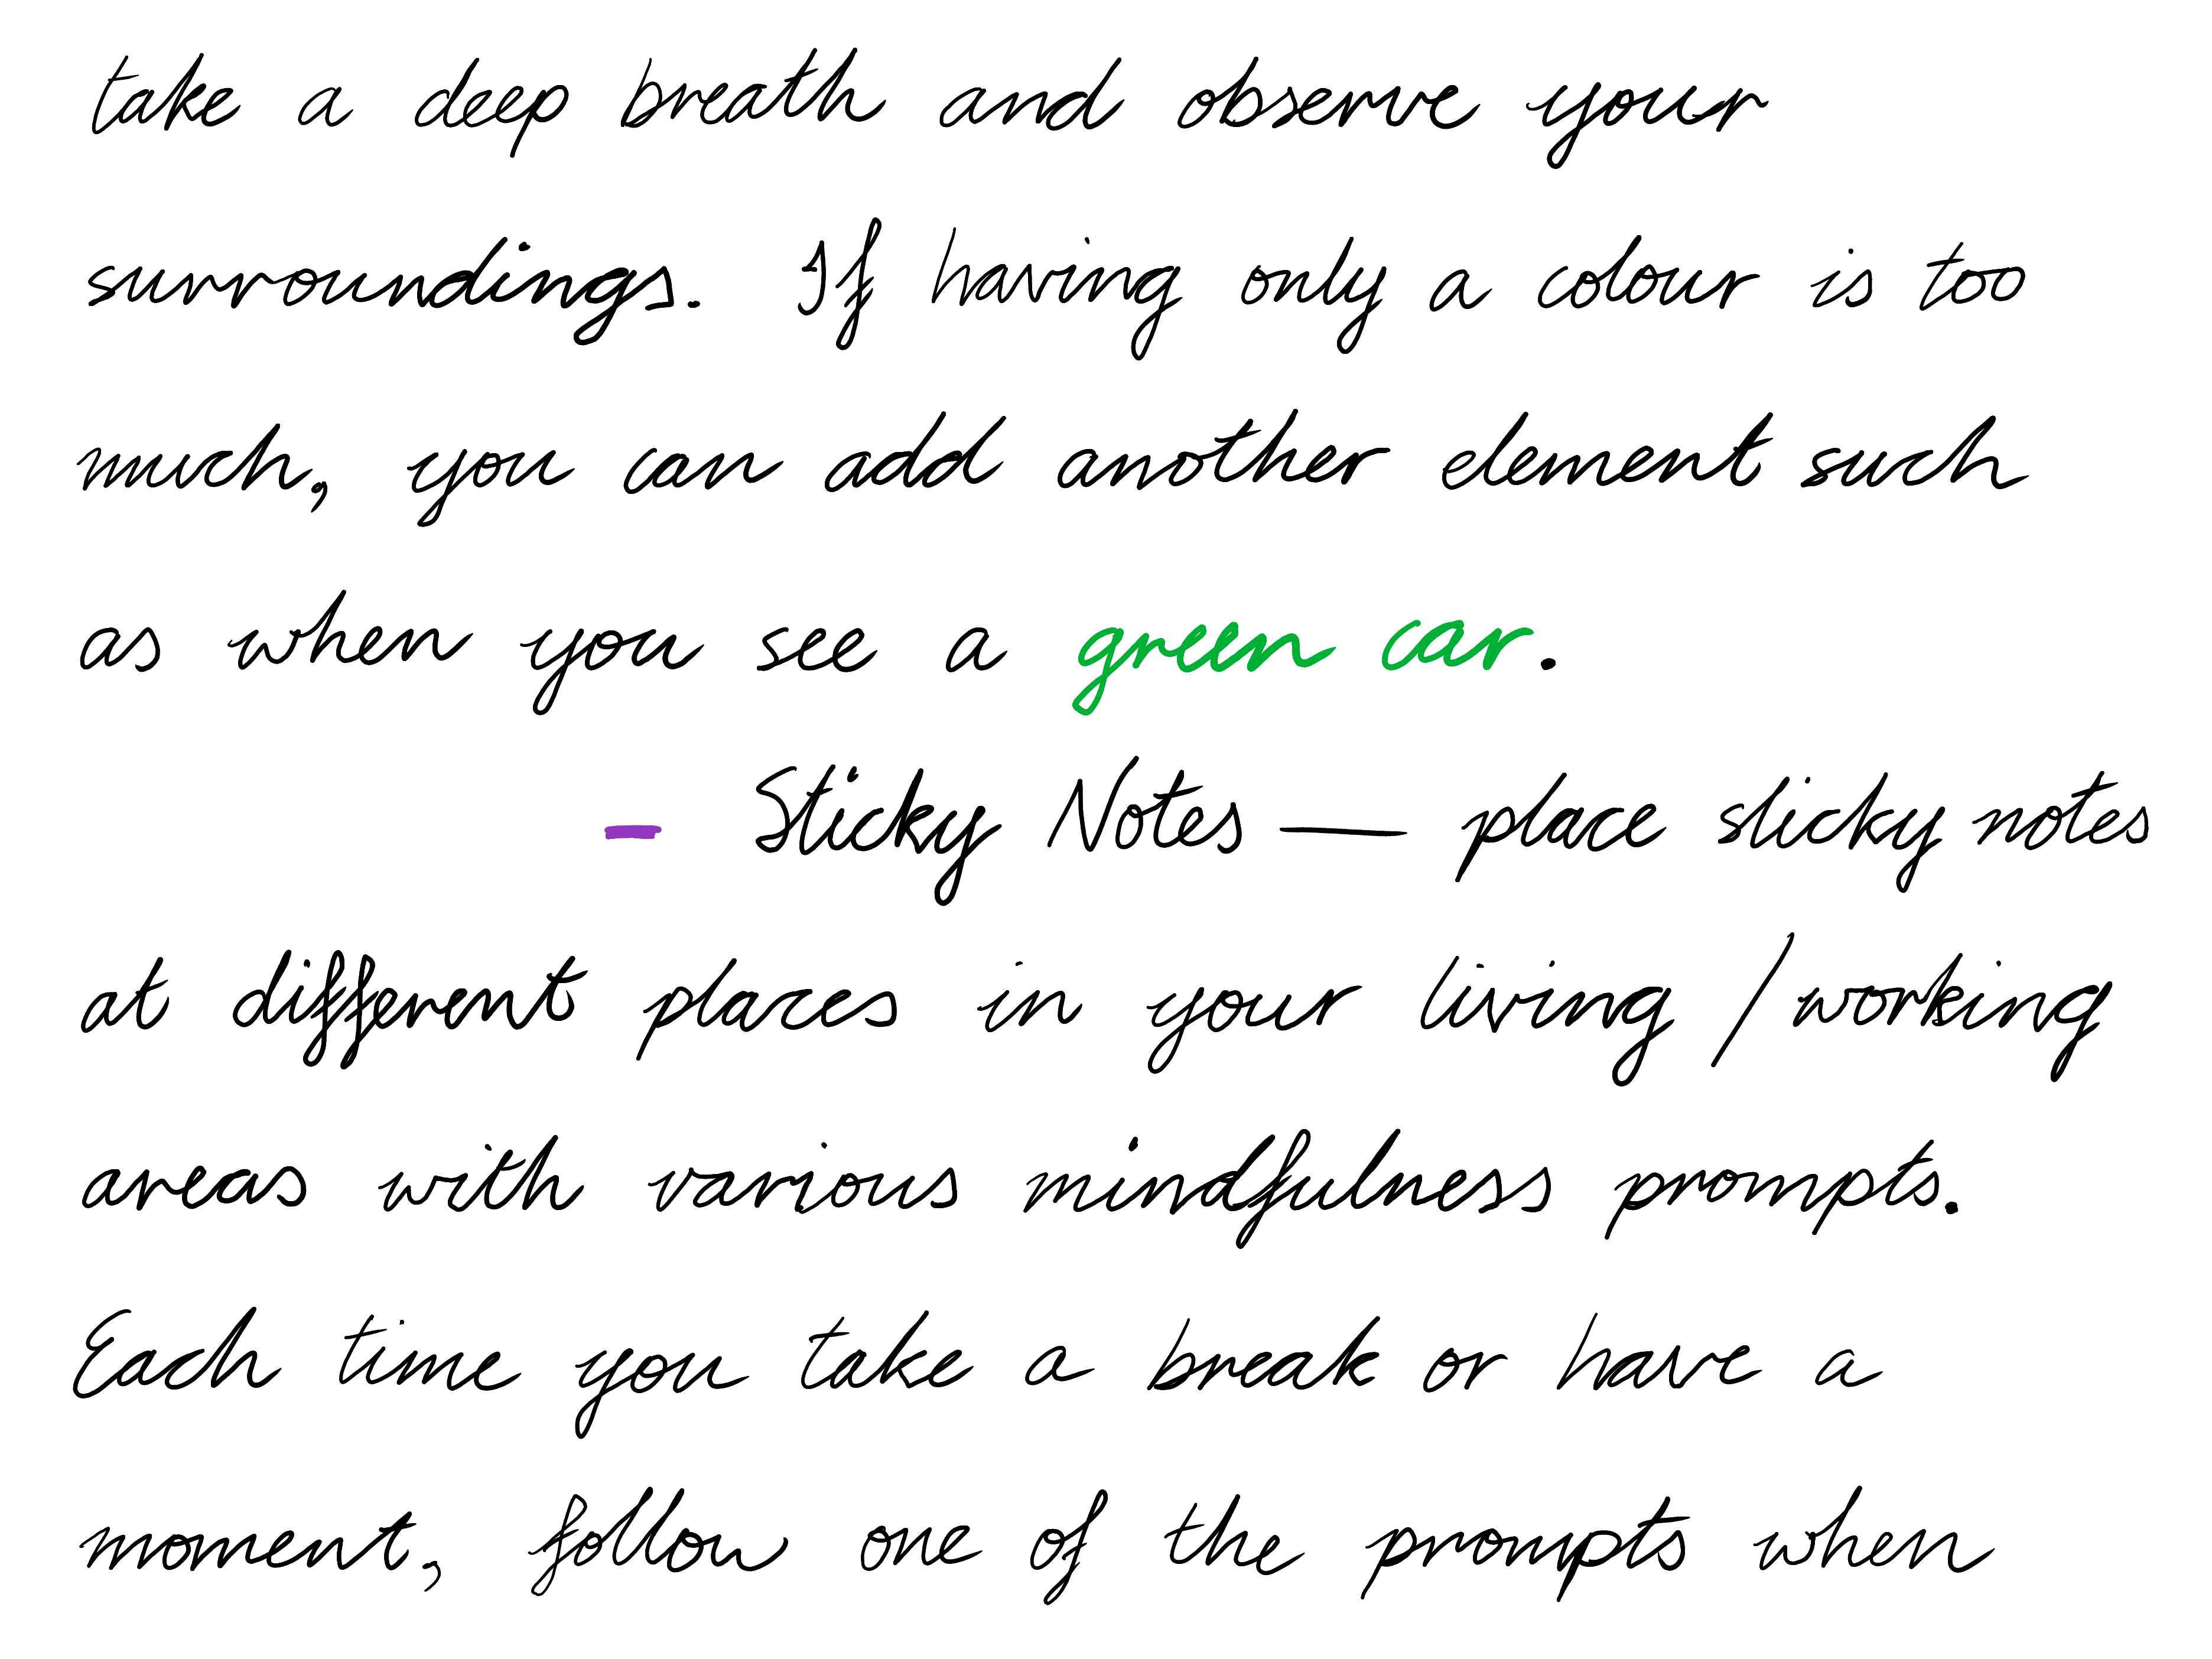 take a deep breath and observe your
surroundings. If having only a colour is too
much, you can add another element such
as when you see a green car.
- Sticky Notes — place sticky notes
at different places in your living / working
areas with various mindfulness prompts.
Each time you take a break or have a
moment, follow one of the prompts when